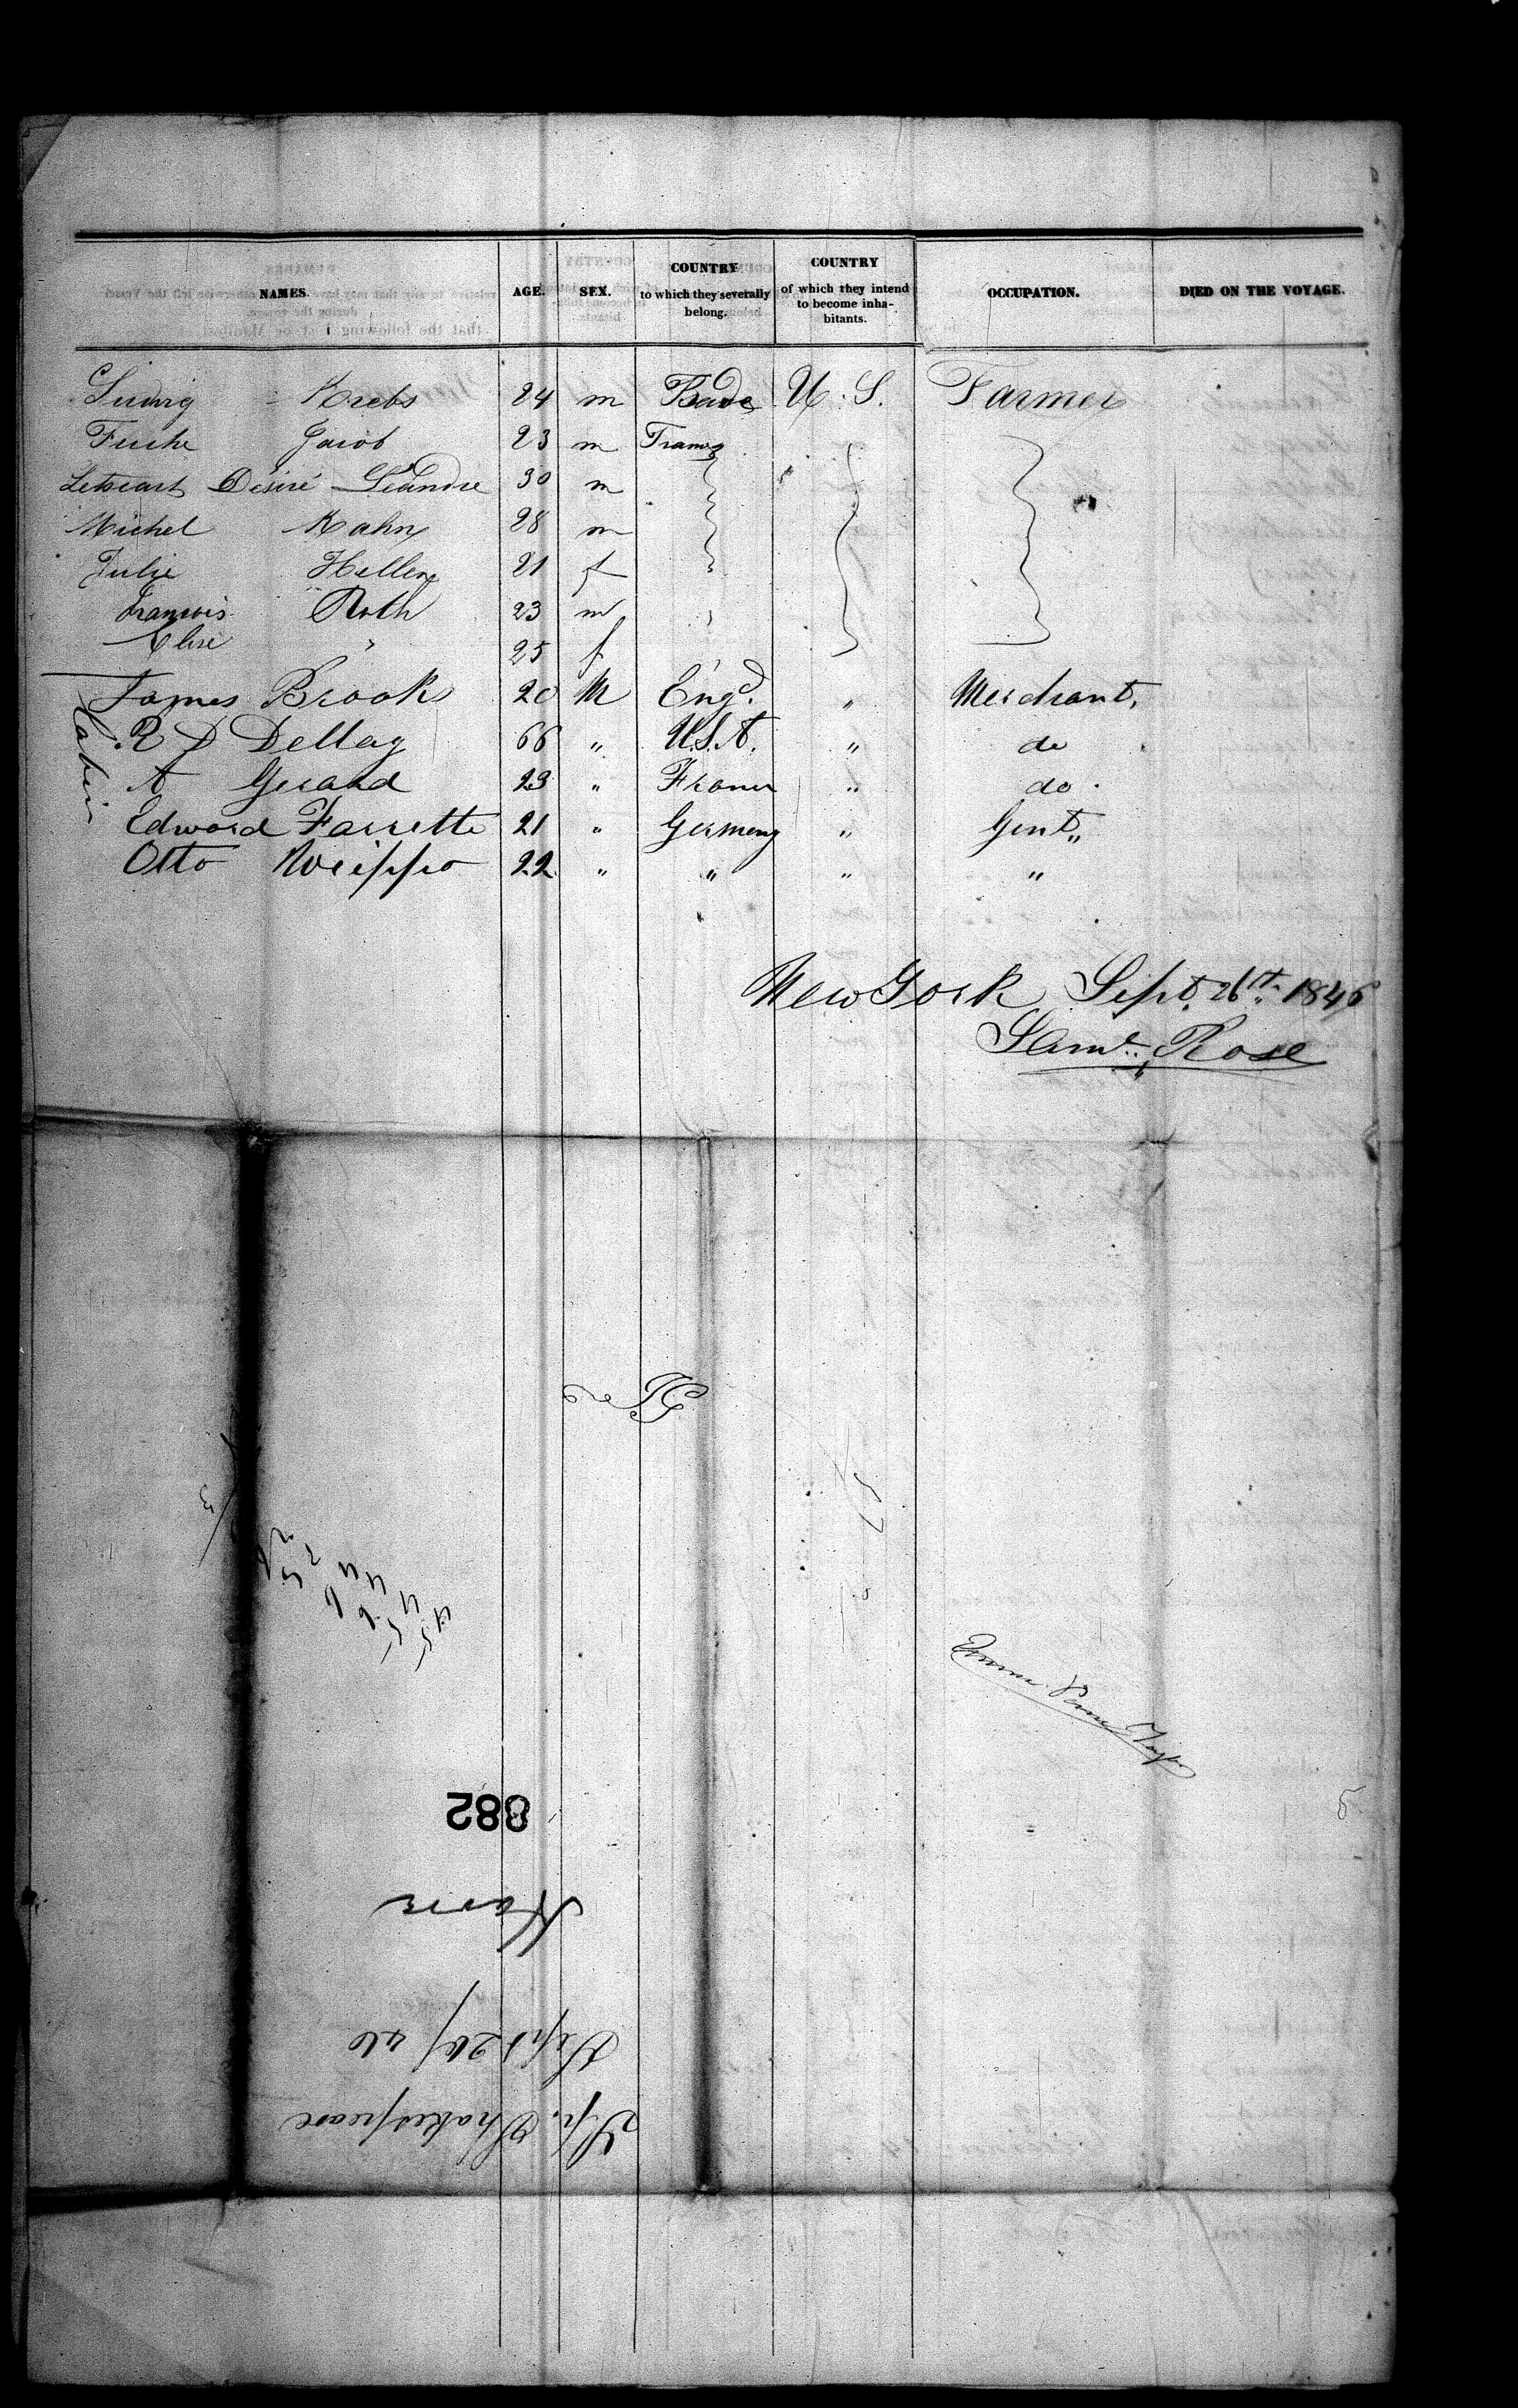 NAMES. AGE. SEX. COUNTRY to which they severally belong. COUNTRY of which they intend to become inhabitants. OCCUPATION. DIED ON THE VOYAGE.
Ludwig - Krebs 24 m Bade U.S. Farmer
Fuchs Jacob 23 m France
Désiré Léandre 30 m
Michel Kahn 28 m
Julie Hellen 21 f
Francois Roth 23 m
Elise " 25 f
James Brook 20 M Engd. " Merchant,
Cabin
R D Dellay 66 " U.S.A. " do
A Gerard 23 " France " do.
Edward Farrette 21 " Germany " Gent"
Otto Weippo 22 " " " "
New York Sept. 26th 1846
Saml. Rose
882
Havre
Sept 26/46
Sp. Shakespeare